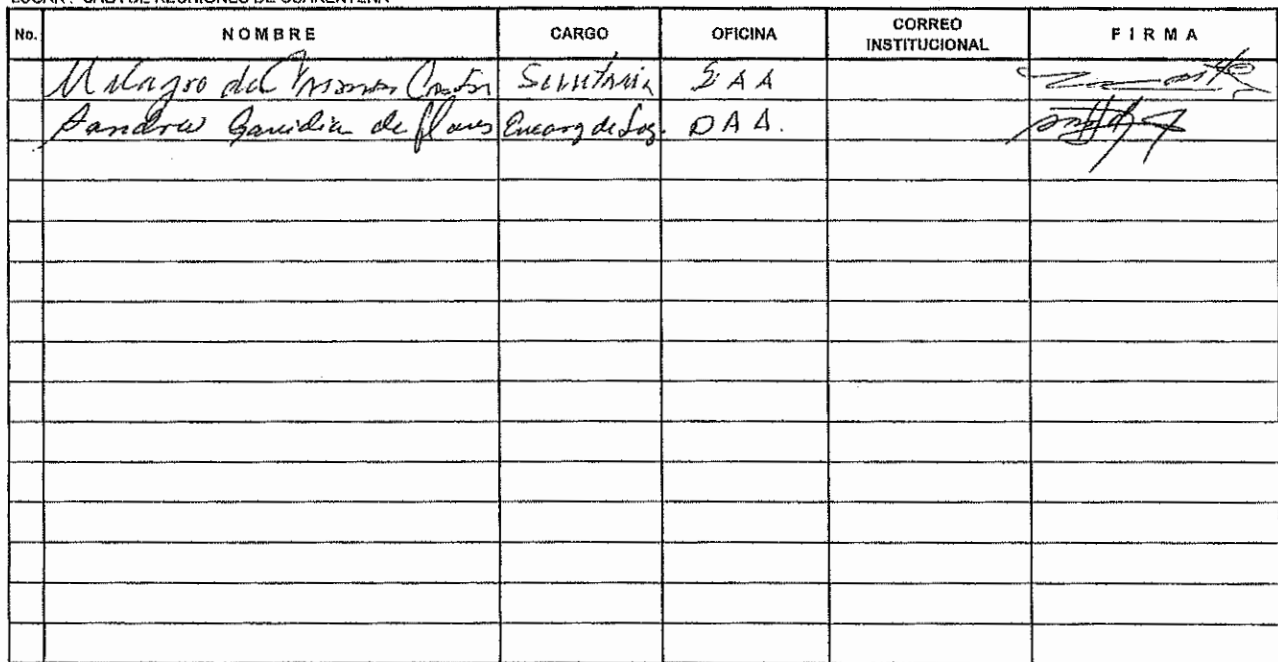 LUGAR : SALA DE REUNIONES DE CUARENTENA
No. NOMBRE CARGO OFICINA CORREO INSTITUCIONAL FIRMA
Milagro del Secretaria DAA
Sandra Gavidia de Flores Encarg de Log. DAA.